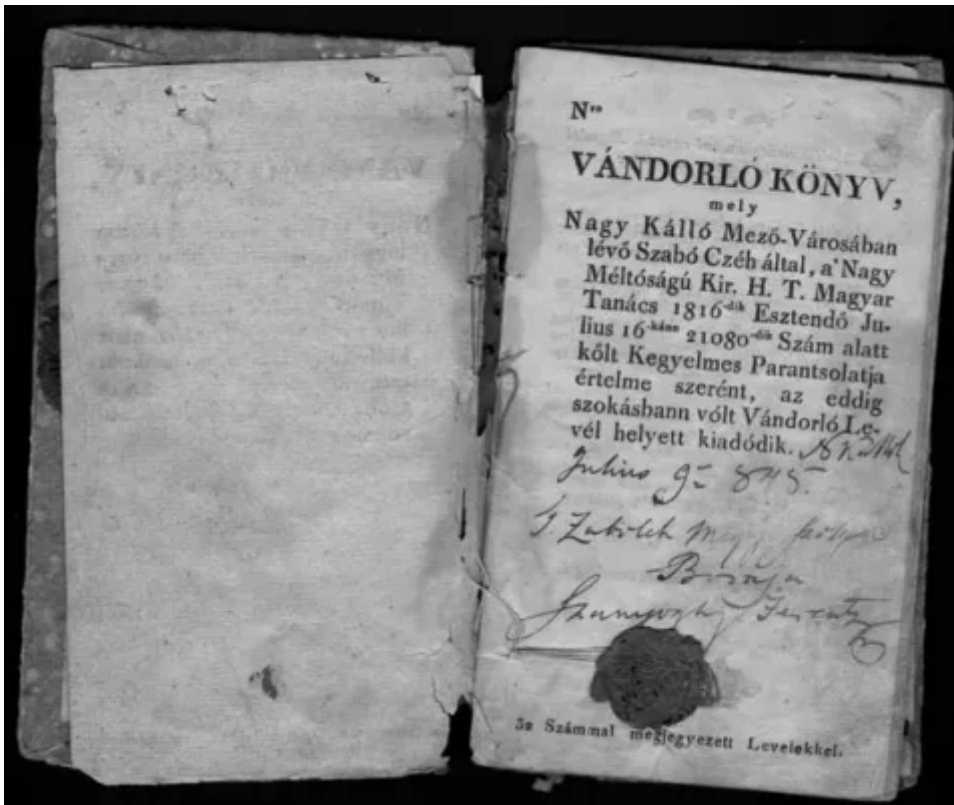 Nro
VÁNDORLÓ KÖNYV,
mely
Nagy Kálló Mező-Városában
lévő Szabó Czéh által, a' Nagy
Méltóságú Kir. H. T. Magyar
Tanács 1816-dik Esztendő Ju-
lius 16-kánn 21080-dik Szám alatt
kőlt Kegyelmes Parantsolatja
értelme szerént, az eddig
szokásbann vólt Vándorló Le-
vél helyett kiadódik. N Kálló
Julius 9= 845.
Birája
Ferentz
32 Számmal megjegyezett Levelekkel.